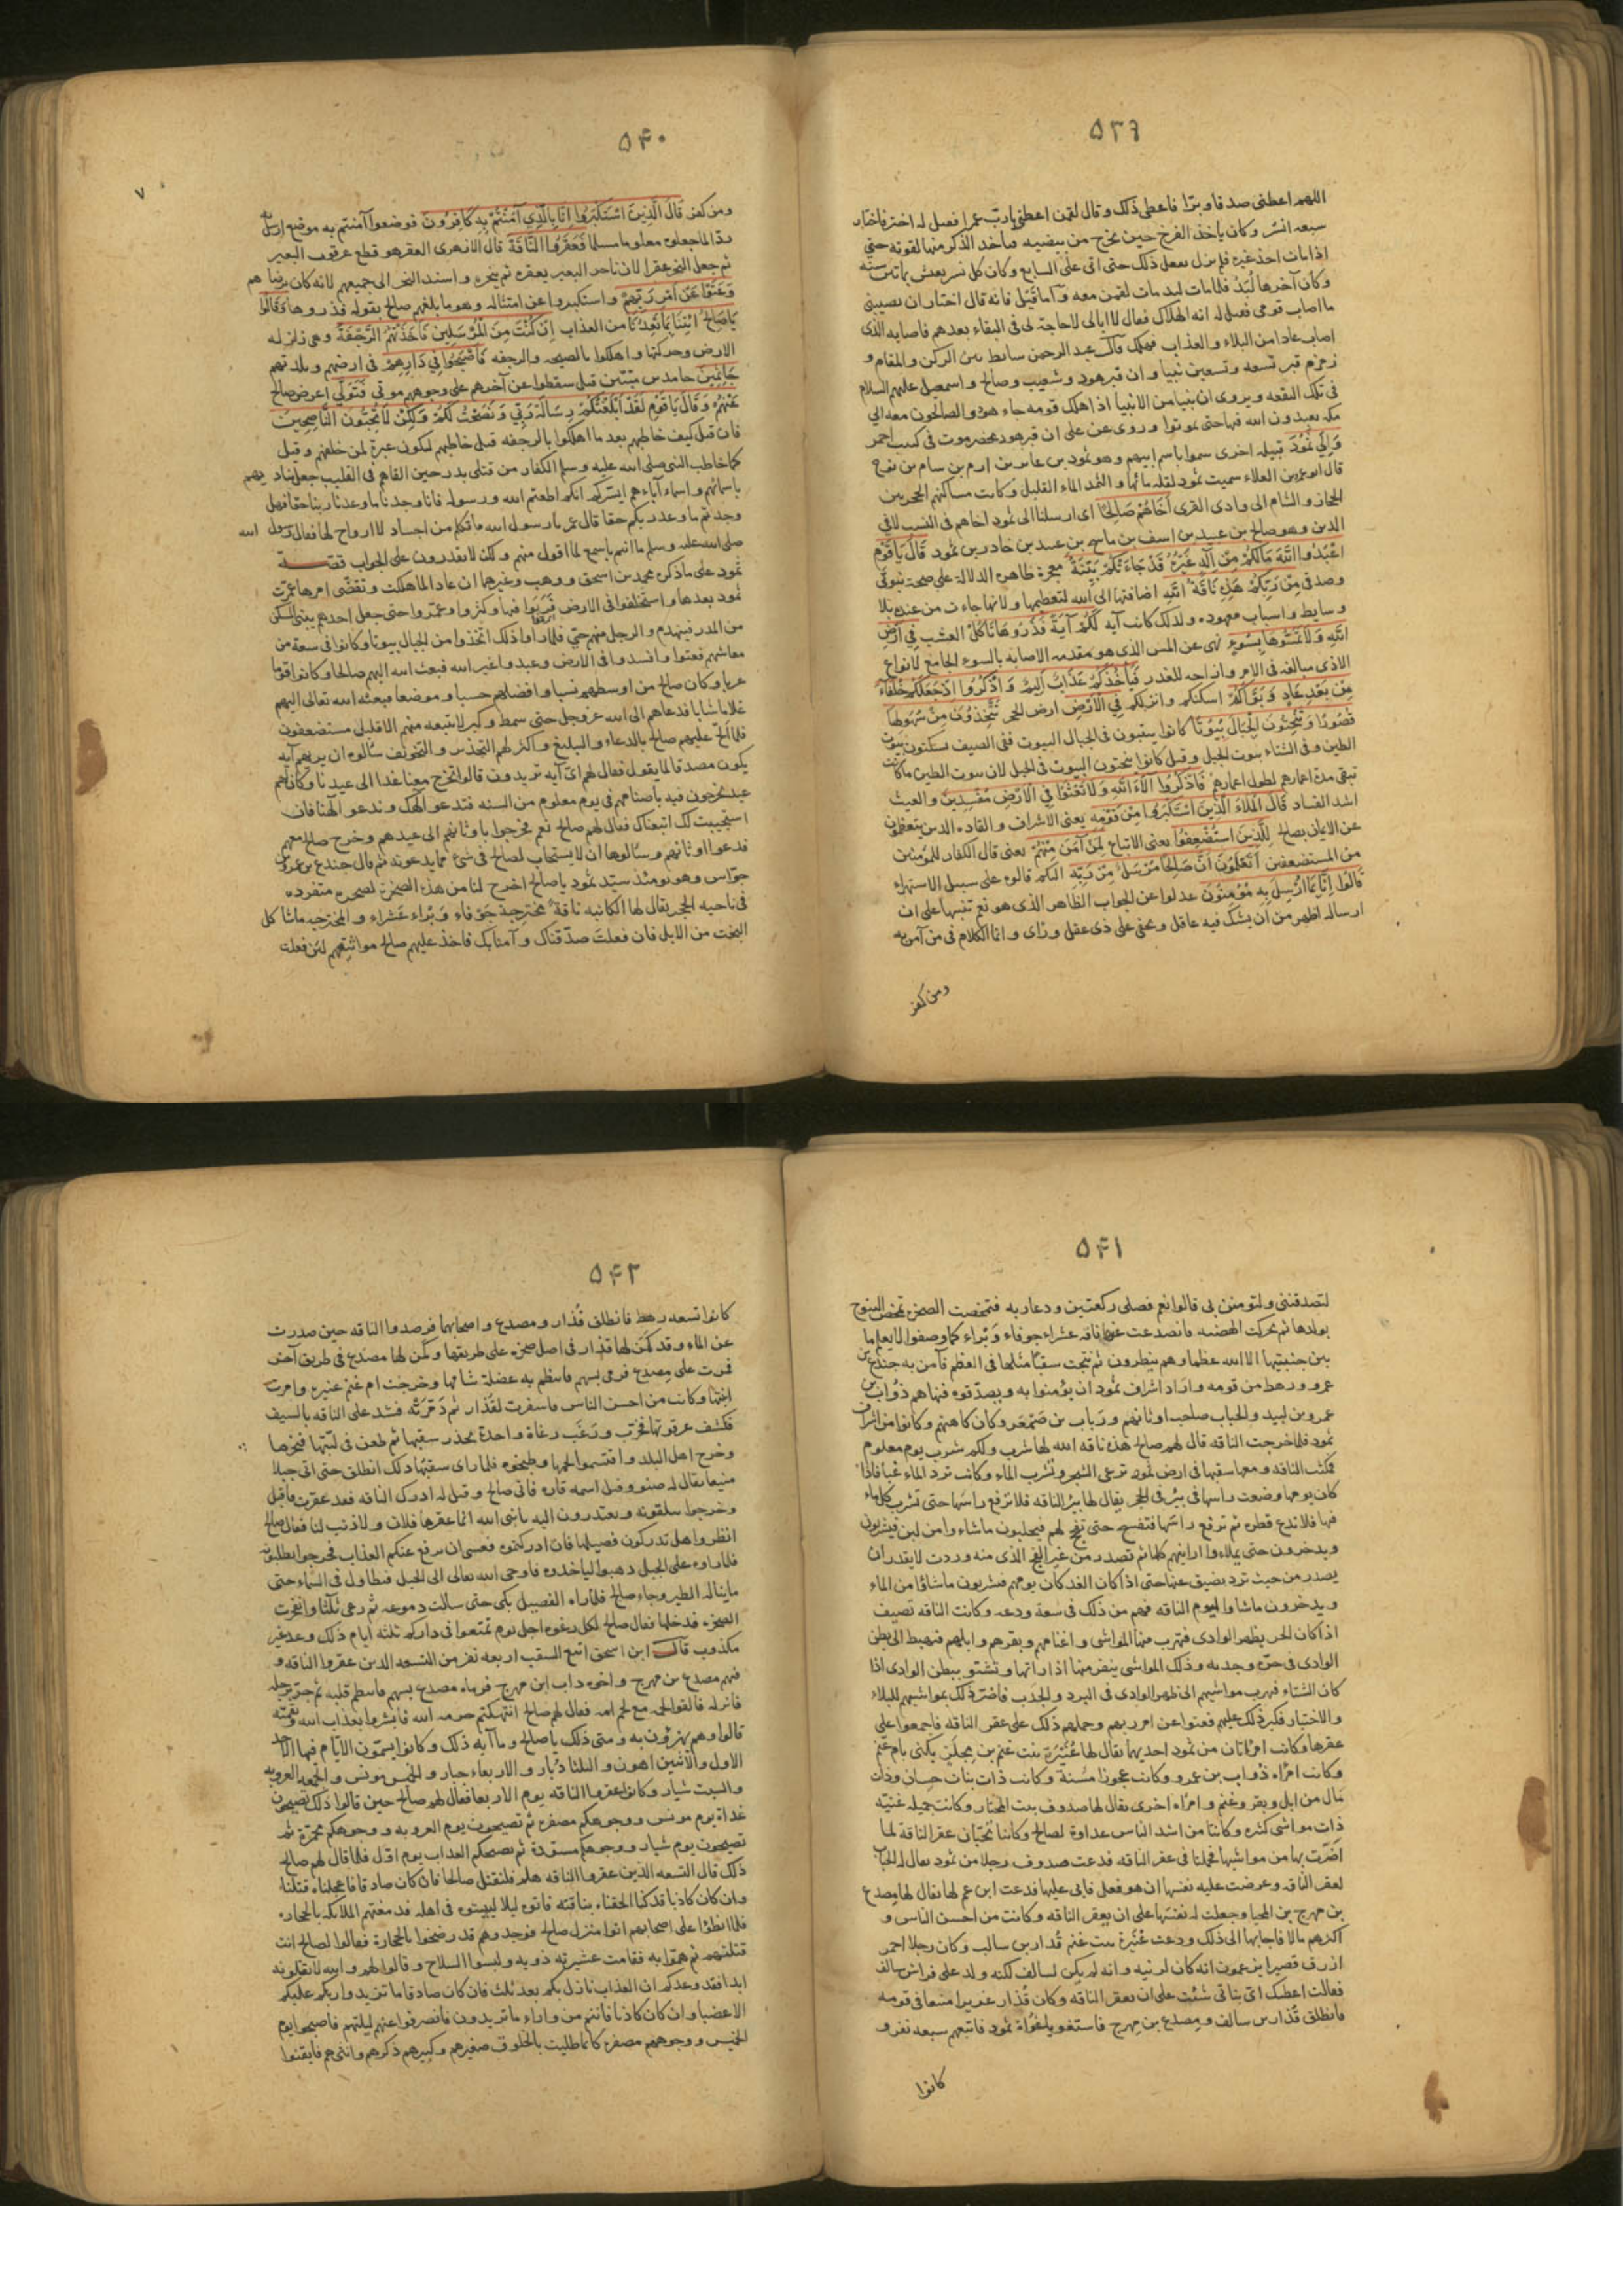 ٥٣٩
اللهم اعطنى صدقا وبرّا فاعطى ذلك وقال لقمن اعطنى يا ربّ عمرا فقيل له اختر فاختار
سبعه انسُر وكان ياخذ الفرخ حين يخرج من بيضه فياخذ الذكر منها لقوته حتى
اذا مات اخذ غيره فلم يزل يفعل ذلك حتى اتى على السابع وكان كل نسر يعيش ثمانين سنه
وكان آخرها لُبَدُ فلما مات لبد مات لقمن معه وامّا قَيْل فانه قال اختار ان يصيبنى
ما اصاب قومى فقيل له انه الهلاك فقال لا ابالى لا حاجة لى فى البقاء بعدهم فاصابه الذى
اصاب عادا من البلاء والعذاب فهلك قال عبد الرحمن سابط بين الركن والمقام و
زمزم قبر تسعه وتسعين نبيا وان قبر هود وشعيب وصالح واسمعيل عليهم السلام
فى تلك البقعه ويروى ان نبيا من الانبيا اذا هلك قومه جاء هو والصالحون معه الى
مكه يعبدون الله فيها حتى يموتوا وروى عن على ان قبر هود بحضرموت فى كثيب احمر
وَاِلى ثَمُودَ قبيله اخرى سموا باسم ابيهم وهو ثمود بن عابر بن ارم بن سام بن نوح
قال ابو عمرو بن العلاء سميت ثمود لقله مائها والثمد الماء القليل وكانت مساكنهم الحجر بين
الحجاز والشام الى وادى القرى اَخَاهُمْ صَالِحًا اى ارسلنا الى ثمود اخاهم فى النسب لا فى
الدين وهو صالح بن عبيد بن اسف بن ماسح بن عبيد بن خادر بن ثمود قَالَ يَا قَوْمِ
اعْبُدُوا اللّٰهَ مَا لَكُمْ مِنْ اِلٰهٍ غَيْرُهُ قَدْ جَاءَتْكُمْ بَيِّنَةٌ معجزة ظاهره الدلالة على صحة نبوتى
وصدقى مِنْ رَبِّكُمْ هٰذِهِ نَاقَةُ اللّٰهِ اضافتها الى الله لتعظيمها ولانها جاءت من عنده بلا
وسايط واسباب معهوده ولذلك كانت آيه لَكُمْ آيَةً فَذَرُوهَا تَأكُلْ العشب فِي اَرْضِ
اللّٰهِ وَلاَ تَمَسُّوهَا بِسُوءٍ نهى عن المس الذى هو مقدمه الاصابه بالسوء الجامع لانواع
الاذى مبالغه فى الامر وازاحه للعذر فَيَأْخُذَكُمْ عَذَابٌ اَلِيمٌ وَاذْكُرُوا اِذْ جَعَلَكُمْ خُلَفَاءَ
مِنْ بَعْدِ عَادٍ وَبَوَّاَكُمْ اسكنكم وانزلكم فِي الْاَرْضِ ارض الحجر تَتَّخِذُونَ مِنْ سُهُولِهَا
قُصُورًا وَتَنْحِتُونَ الْجِبَالَ بُيُوتًا كانوا ينقبون فى الجبال البيوت ففى الصيف يسكنون بيوت
الطين وفى الشتاء بيوت الجبل وقيل كانوا ينحتون البيوت فى الجبل لان بيوت الطين ما كانت
تبقى مدة اعمارهم لطول اعمارهم فَاذْكُرُوا اٰلاَءَ اللّٰهِ وَلاَ تَعْثَوْا فِي الْاَرْضِ مُفْسِدِينَ والعيث
اشد الفساد قَالَ الْمَلَاُ الَّذِينَ اسْتَكْبَرُوا مِنْ قَوْمِهِ يعنى الاشراف والقاده الذين تعظموا
عن الايمان بصالح لِلَّذِينَ اسْتُضْعِفُوا يعنى الاتباع لِمَنْ آمَنَ مِنْهُمْ يعنى قال الكفار للمؤمنين
من المستضعفين اَتَعْلَمُونَ اَنَّ صَالِحًا مُرْسَلٌ مِنْ رَبِّهِ اليكم قالوه على سبيل الاستهزاء
قَالُوا اِنَّا بِمَا اُرْسِلَ بِهِ مُؤْمِنُونَ عدلوا عن الجواب الظاهر الذى هو نعم تنبيها على ان
ارساله اظهر من ان يشك فيه عاقل ويخفى على ذى عقل ورأى وانما الكلام فى من آمن به
ومن كفر
٥۴٠
ومن كفر قَالَ الَّذِينَ اسْتَكْبَرُوا اِنَّا بِالَّذِي آمَنْتُمْ بِهِ كَافِرُونَ فوضعوا آمنتم به موضع ارسل به
ردّا لما جعلوه معلوما مسلما فَعَقَرُوا النَّاقَةَ قال الازهرى العقر هو قطع عرقوب البعير
ثم جعل النحر عقرا لان ناحر البعير يعقره ثم ينحره واسند النحر الى جميعهم لانه كان برضاهم
وَعَتَوْا عَنْ اَمْرِ رَبِّهِمْ واستكبروا عن امتثاله وهو ما بلغهم صالح بقوله فذروها وَقَالُوا
يَا صَالِحُ ائْتِنَا بِمَا تَعِدُنَا من العذاب اِنْ كُنْتَ مِنَ الْمُرْسَلِينَ فَاَخَذَتْهُمُ الرَّجْفَةُ وهى زلزله
الارض وحركتها واهلكوا بالصيحه والرجفه فَاَصْبَحُوا فِي دَارِهِمْ فى ارضهم وبلدتهم
جَاثِمِينَ خامدين ميتين قيل سقطوا عن آخرهم على وجوههم موتى فَتَوَلَّى اعرض صالح
عَنْهُمْ وَقَالَ يَا قَوْمِ لَقَدْ اَبْلَغْتُكُمْ رِسَالَةَ رَبِّي وَنَصَحْتُ لَكُمْ وَلٰكِنْ لاَ تُحِبُّونَ النَّاصِحِينَ
فان قيل كيف خاطبهم بعد ما اهلكوا بالرجفه قيل خاطبهم ليكون عبرة لمن خلفهم وقيل
كما خاطب النبى صلى الله عليه وسلم الكفار من قتلى بدر حين القاهم فى القليب جعل يناديهم
باسمائهم واسماء آباءهم ايسركم انكم اطعتم الله ورسوله فانا وجدنا ما وعدنا ربنا حقا فهل
وجدتم ما وعد ربكم حقا قال عمر يا رسول الله ما تكلم من اجساد لا ارواح لها فقال رسول الله
صلى الله عليه وسلم ما انتم باسمع لما اقول منهم ولكن لا يقدرون على الجواب قصة
ثمود على ما ذكره محمد بن اسحق ووهب وغيرهما ان عادا لما هلكت وتقضّى امرها عمرت
ثمود بعدها واستخلفوا فى الارض فربوا فيها وكثروا وعمّروا حتى جعل احدهم يبنى المسكن
من المدر فينهدم والرجل منهم حى فلما راوا ذلك اتخذوا من الجبال بيوتا وكانوا فى سعة من
معاشهم فعتوا وافسدوا فى الارض وعبدوا غير الله فبعث الله اليهم صالحا وكانوا قوما
عربا وكان صالح من اوسطهم نسبا وافضلهم حسبا وموضعا فبعثه الله تعالى اليهم
غلاما شابا فدعاهم الى الله عز وجل حتى شمط وكبر لا يتبعه منهم الا قليل مستضعفون
فلما الحّ عليهم صالح بالدعاء والتبليغ واكثر لهم التحذير والتخويف سألوه ان يريهم آيه
يكون مصدقا لما يقول فقال لهم اىّ آيه تريدون قالوا تخرج معنا غدا الى عيدنا وكان لهم
عيد يخرجون فيه باصنامهم فى يوم معلوم من السنه فتدعو الهك وندعو آلهتنا فان
استجيبت لك اتبعناك فقال لهم صالح نعم فخرجوا باوثانهم الى عيدهم وخرج صالح معهم
فدعوا اوثانهم وسألوها ان لا يستجاب لصالح فى شئ مما يدعو به ثم قال جندع بن عمرو بن
جوّاس وهو يومئذ سيّد ثمود يا صالح اخرج لنا من هذه الصخرة لصخره منفرده
فى ناحيه الحجر يقال لها الكاثبه ناقةً مخترجة جَوْفاء وَبْراء عُشَراء والمخترجه ما شاكل
البخت من الابل فان فعلتَ صدّقناك وآمنا بك فاخذ عليهم صالح مواثيقهم لئن فعلت
٥۴١
لتصدقننى ولتومنن بى قالوا نعم فصلى ركعتين ودعا ربه فتمخضت الصخرة تمخض النتوج
بولدها ثم تحركت الهضبه فانصدعت عن ناقه عشراء جوفاء وَبْراء كما وصفوا لا يعلم ما
بين جنبتيها الا الله عظما وهم ينظرون ثم نتجت سقبًا مثلها فى العظم فآمن به جندع بن
عمرو ورهط من قومه واراد اشراف ثمود ان يؤمنوا به ويصدّقوه فنهاهم ذُؤاب بن
عمرو بن لبيد والحباب صاحب اوثانهم ورَباب بن صَمْعَر وكان كاهنهم وكانوا من اشراف
ثمود فلما خرجت الناقه قال لهم صالح هذه ناقه الله لها شرب ولكم شرب يوم معلوم
فمكثت الناقه ومعها سقبها فى ارض ثمود ترعى الشجر وتشرب الماء وكانت ترد الماء غبًّا فاذا
كان يومها وضعت راسها فى بئر فى الحجر يقال لها بئر الناقه فلا ترفع راسها حتى تشرب كل ماء
فيها فلا تدع قطره ثم ترفع راسها فتفشح حتى تفحج لهم فيحلبون ما شاءوا من لبن فيشربون
ويدخرون حتى يملاءوا اوانيهم كلها ثم تصدر من غير الفج الذى منه وردت لا يقدر ان
يصدر من حيث ترد يضيق عنها حتى اذا كان الغد كان يومهم فيشربون ما شاؤا من الماء
ويدخرون ما شاوا ليوم الناقه فهم من ذلك فى سَعة ودعه وكانت الناقه تصيف
اذا كان الحر بظهر الوادى فتهرب منها المواشى واغنامهم وبقرهم وابلهم فتهبط الى بطن
الوادى فى حرّه وجدبه وذلك المواشى ينفر منها اذا راتها وتشتو ببطن الوادى اذا
كان الشتاء فتهرب مواشيهم الى ظهر الوادى فى البرد والجدب فاضرّ ذلك بمواشيهم للبلاء
والاختبار فكبر ذلك عليهم فعتوا عن امر ربهم وحملهم ذلك على عقر الناقه فاجمعوا على
عقرها وكانت امرأتان من ثمود احديهما يقال لها عُنَيْزة بنت غنم بن مجلَز يكنى بام غنم
وكانت امرأه ذُؤاب بن عمرو وكانت عجوزا مُسنة وكانت ذات بنات حِسان وذات
مال من ابل وبقر وغنم وامرأه اخرى يقال لها صدوف بنت المحتار وكانت جميله غنيّه
ذات مواشى كثيره وكانتا من اشد الناس عداوة لصالح وكانتا تحبّان عقر الناقه لما
اضرّت بها من مواشيهما فتحيلتا فى عقر الناقه فدعت صدوف رجلا من ثمود يقال له الحباب
لعقر الناقه وعرضت عليه نفسها ان هو فعل فابى عليها فدعت ابن عم لها يقال لها مِصدع
بن مهرج بن المحيا وجعلت له نفسَها على ان يعقر الناقه وكانت من احسن الناس و
اكثرهم مالا فاجابها الى ذلك ودعت عُنَيزة بنت غنم قُدار بن سالب وكان رجلا احمر
ازرق قصيرا يزعمون انه كان لزنيه وانه لم يكن لسالف لكنه ولد على فراش سالف
فقالت اعطيك اىّ بناتى شئت على ان يعقر الناقه وكان قُذار عزيرا منيعا فى قومه
فانطلق قُدار بن سالف ومِصدع بن مهرج فاستغويا غُواة ثمود فاتبعهم سبعه نفر و
كانوا
٥۴٢
كانوا تسعه رهط فانطلق قُذار ومصدع واصحابهما فرصدوا الناقه حين صدرت
عن الماء وقد كمَن لها قذار فى اصل صخره على طريقها وكمن لها مصدع فى طريق آخر
فمرت على مِصدع فرمى بسهم فانتظم به عضلة ساقها وخرجت ام غنم عنيزه وامرت
ابنتها وكانت من احسن الناس فاسفرت لقُذار ثم ذمّرته فشد على الناقه بالسيف
فكشف عرقوبها فخرّت ورَغَب رغاة واحدة تحذر سقبها ثم طعن فى لبّتها فنحرها
وخرج اهل البلد واقتسموا لحمها وطبخوه فلما راى سقبُها ذلك انطلق حتى اتى جبلا
منيعا يقال له صنو وقيل اسمه قاره فاتى صالح وقيل له ادرك الناقه فقد عقرت فاقبل
وخرجوا يتلقونه ويعتذرون اليه يا نبى الله انما عقرها فلان ولا ذنب لنا فقال صالح
انظروا هل تدركون فصيلها فان ادركتموه فعسى ان يرفع عنكم العذاب فخرجوا يطلبونه
فلما راوه على الجبل ذهبوا لياخذوه فاوحى الله تعالى الى الجبل فتطاول فى السّماء حتى
ما يناله الطير وجاء صالح فلما راه الفصيل بكى حتى سالت دموعه ثم رغى ثلثا وانفجرت
الصخره فدخلها فقال صالح لكل رغوه اجل يوم تمتعوا فى داركم ثلثة ايام ذلك وعد غير
مكذوب قال ابن اسحق اتبع السقب اربعه نفر من التسعه الذين عقروا الناقه و
فيهم مصدع بن مهرج واخوه داب ابن مهرج فرماه مصدع بسهم فانتظم قلبه ثم جر برجله
فانزله فالقوا لحمه مع لحم امه فقال لهم صالح انتهكتم حرمه الله فابشروا بعذاب الله ونقمته
قالوا وهم يهزؤن به ومتى ذلك يا صالح وما آيه ذلك وكانوا يسمّون الايّام فيها الاحد
الاول والاثنين اهون والثلثا دُبار والاربعاء جبار والخميس مونس والجمعه العروبه
والسبت شيار وكانوا عقروا الناقه يوم الاربعا فقال لهم صالح حين قالوا ذلك تصبحون
غداة يوم مونس ووجوهكم مصفره ثم تصبحون يوم العروبه ووجوهكم محمرّة ثم
تصبحون يوم شيار ووجوهكم مسودة ثم يصبحكم العذاب يوم اوّل فلما قال لهم صالح
ذلك قال التسعه الذين عقروا الناقه هلم فلنقتل صالحا فان كان صادقا فاعجلناه قتلنا
وان كان كاذبا قد كنا الحقناه بناقته فاتوه ليلا ليبيتوه فى اهله فدمغتهم الملائكه بالحجاره
فلما ابطئوا على اصحابهم اتوا منزل صالح فوجدوهم قد رضخوا بالحجارة فقالوا لصالح انت
قتلتهم ثم همّوا به فقامت عشيرته ذويه ولبسوا السلاح وقالوا لهم والله لا تقتلونه
ابدا فقد وعدكم ان العذاب نازل بكم بعد ثلث فان كان صادقا ما تزيدوا ربكم عليكم
الا غضبا وان كان كاذبا فانتم من وراء ما تريدون فانصرفوا عنهم ليلتهم فاصبحوا يوم
الخميس ووجوههم مصفره كانما طليت بالخلوق صغيرهم وكبيرهم ذكرهم وانثىهم فايقنوا